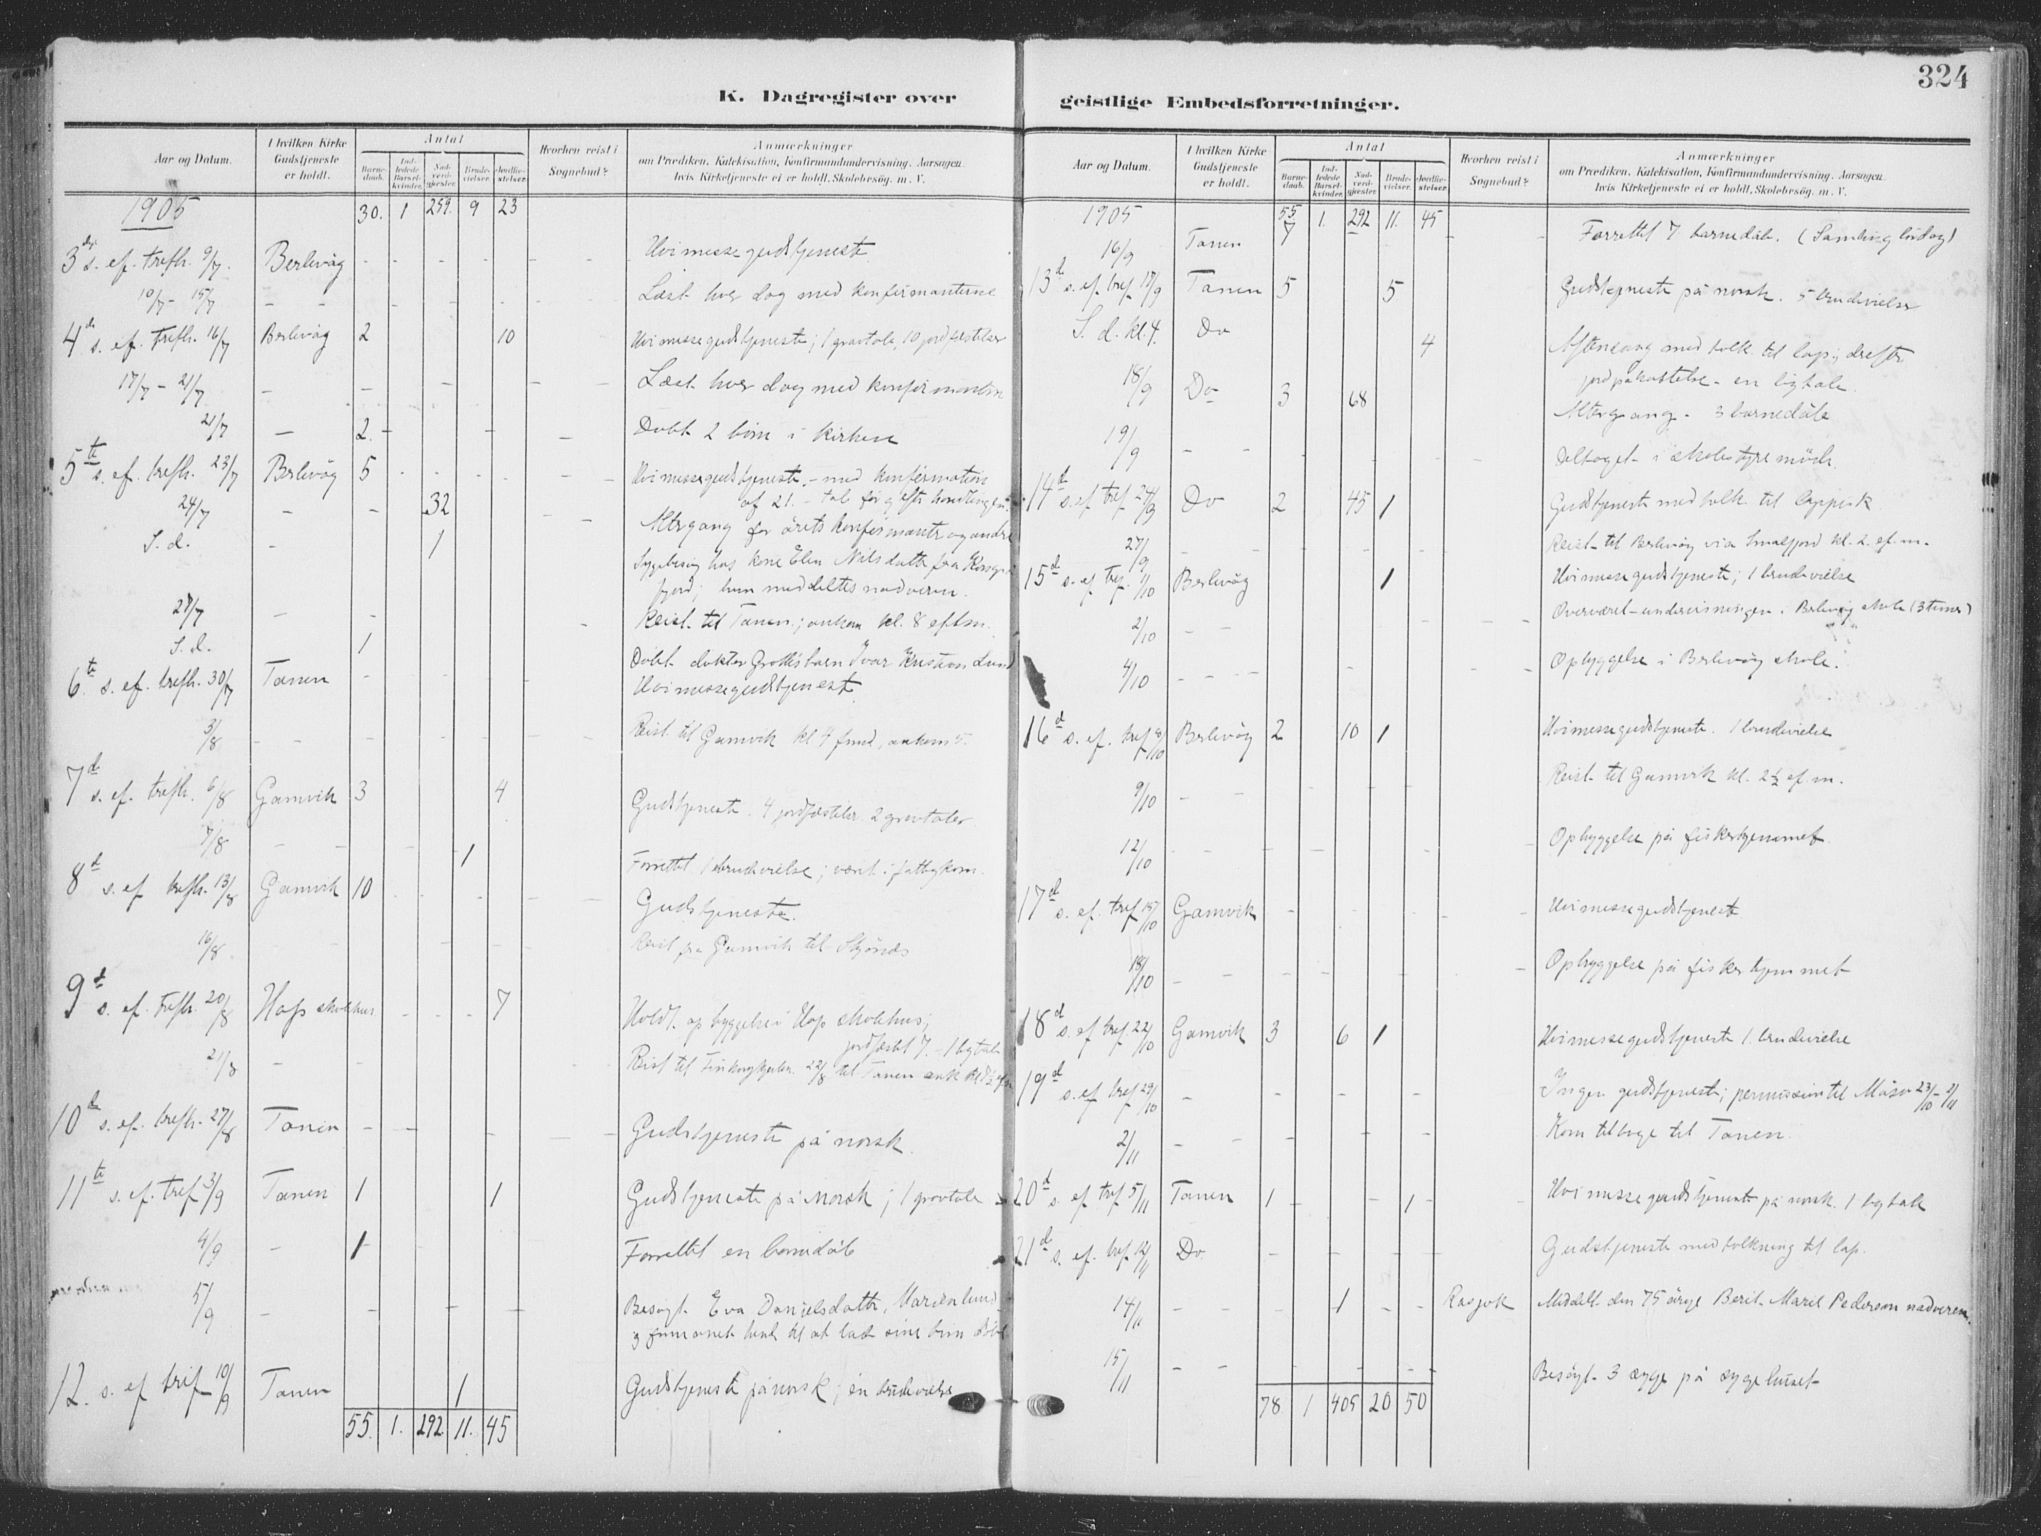 324
K. Dagregister over geistlige Embedsforretninger.
Aar og Datum.
I hvilken Kirke Gudstjeneste er holdt.
Antal
Barnedaab.
Indledede Barselkvinder.
Nadverdgjester.
Brudevielser.
Jordfæstelser.
Hvorhen reist i Sognebud?
Anmærkninger
om Prædiken, Katekisation, Konfirmandundervisning, Aarsagen,
hvis Kirketjeneste ei er holdt, Skolebesög, m. V.
1905 30. 1 259. 9 23
3 s. ef. trefh. 9/7. Berlevåg Hvimessegudstjeneste
10/7 - 15/7 Læst hver dag med konfirmanterne
4 s. ef. trefh. 16/7 Berlevåg 2 10 Hvimessegudstjeneste; 1 gravtale 10 jordfæstelser
17/7 - 21/7 Læst hver dag med konfirmanterne
21/7 2. Døbt 2 børn i kirken
5te s. ef. trefh. 23/7 Berlevåg 5 Hvimessegudstjeneste, med konfirmation
af 21. - tale før og efter handlingen.
24/7 32 Altergang for årets konfirmanter og andre
S. d. 1 Sygebesøg hos kone Elen Nilsdatter fra Kongs-
fjord; hun meddeltes nadveren.
27/7 Reist til Tanen; ankom kl. 8 eftm.
S. d. 1 Døbt doktor barn Ivar Kristian Lund
6te s. ef. trefh. 30/7 Tanen Hvimessegudstjeneste
3/8 Reist til Gamvik kl 4 fmd, ankom 5.
7d s. ef. trefh. 6/8 Gamvik 3 4 Gudstjeneste. 4 jordfæstelser 2 gravtaler
7/8 1 Forrettet 1 brudevielse; været i fattigkom.
8d s. ef. trefh. 13/8 Gamvik 10 Gudstjeneste.
16/8. Reist fra Gamvik til Skjånes
9d s. ef. trefh. 20/8 Hops skolehus 7 Holdt opbyggelse i Hop skolehus;
jordfæstet 7. - 1 ligtale
21/8 Reist til 22/8 til Tanen
10de s. ef. trefh. 27/8 Tanen Gudstjeneste på norsk.
11te s. ef. tref 3/9 Tanen 1 1 Gudstjeneste på norsk; 1 gravtale
4/9 1 Forrettet en barnedåb
5/9 Besøgt Eva Danielsdatter, Marienlund
12. s. ef tref 10/9 Tanen 1 Gudstjeneste på norsk; en brudevielse
55. 1. 292. 11. 45
Aar og Datum.
I hvilken Kirke Gudstjeneste er holdt.
Antal
Barnedaab.
Indledede Barselkvinder.
Nadverdgjester.
Brudevielser.
Jordfæstelser.
Hvorhen reist i Sognebud?
Anmærkninger
om Prædiken, Katekisation, Konfirmandundervisning, Aarsagen,
hvis Kirketjeneste ei er holdt, Skolebesög, m. V.
1905 55 1. 292 11. 45
16/9 Tanen 7 Forrettet 7 barnedåb. (Samling lørdag)
13d s. ef. tref 17/9 Tanen 5 5 Gudstjeneste på norsk. 5 brudevielser
S. d. kl. 4. Do 4 Aftensang med tolk til lap; derefter
jordpåkastelse - en ligtale.
18/9 Do 3 68 Altergang - 3 barnedåb
19/9 Deltaget i skolestyremøde.
14d s. ef tref 24/9 Do 2 45 1 Gudstjeneste med tolk til lappisk
27/9 Reist til Berlevåg via Smalfjord kl. 2. ef. m.
15d s. ef tref. 1/10 Berlevåg 1 Hvimessegudstjeneste; 1 brudevielse
2/10 Overværet undervisningen i Berlevåg skole (3 timer)
4/10 Opbyggelse i Berlevåg skole.
16d s. ef. tref 8/10 Berlevåg 2 10 1 Hvimessegudstjeneste. 1 brudevielse
9/10 Reist til Gamvik kl. 2½ ef. m.
12/10 Opbyggelse på fiskerhjemmet
17d s. ef. tref 15/10 Gamvik Hvimessegudstjeneste
18/10 Opbyggelse på fiskerhjemmet
18d s. ef tref. 22/10 Gamvik 3 6 1 Hvimessegudstjeneste 1. brudevielse
19d s. ef tref 29/10 Ingen gudstjeneste; permission til Måsø 23/10 - 2/11
2/11 Kom tilbage til Tanen.
20d s. ef tref 5/11 Tanen 1 1 Hvimessegudstjeneste på norsk. 1 ligtale
21d s. ef. tref 12/11 Do Gudstjeneste med tolkning til lap.
14/11 1 Rasjok Middelt den 75 årige Berit Marit Pederson nadveren.
15/11 Besøgt 3 syge på sygehuset
78 1 405 20 50